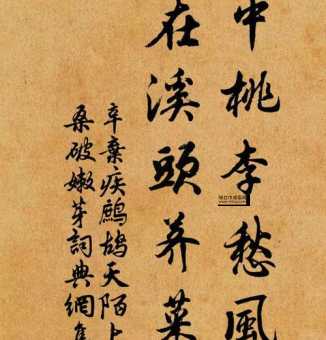 中桃李愁風
在溪頭荠菜
辛棄疾鹧鸪天陌上
桑破嫩芽詞典網集